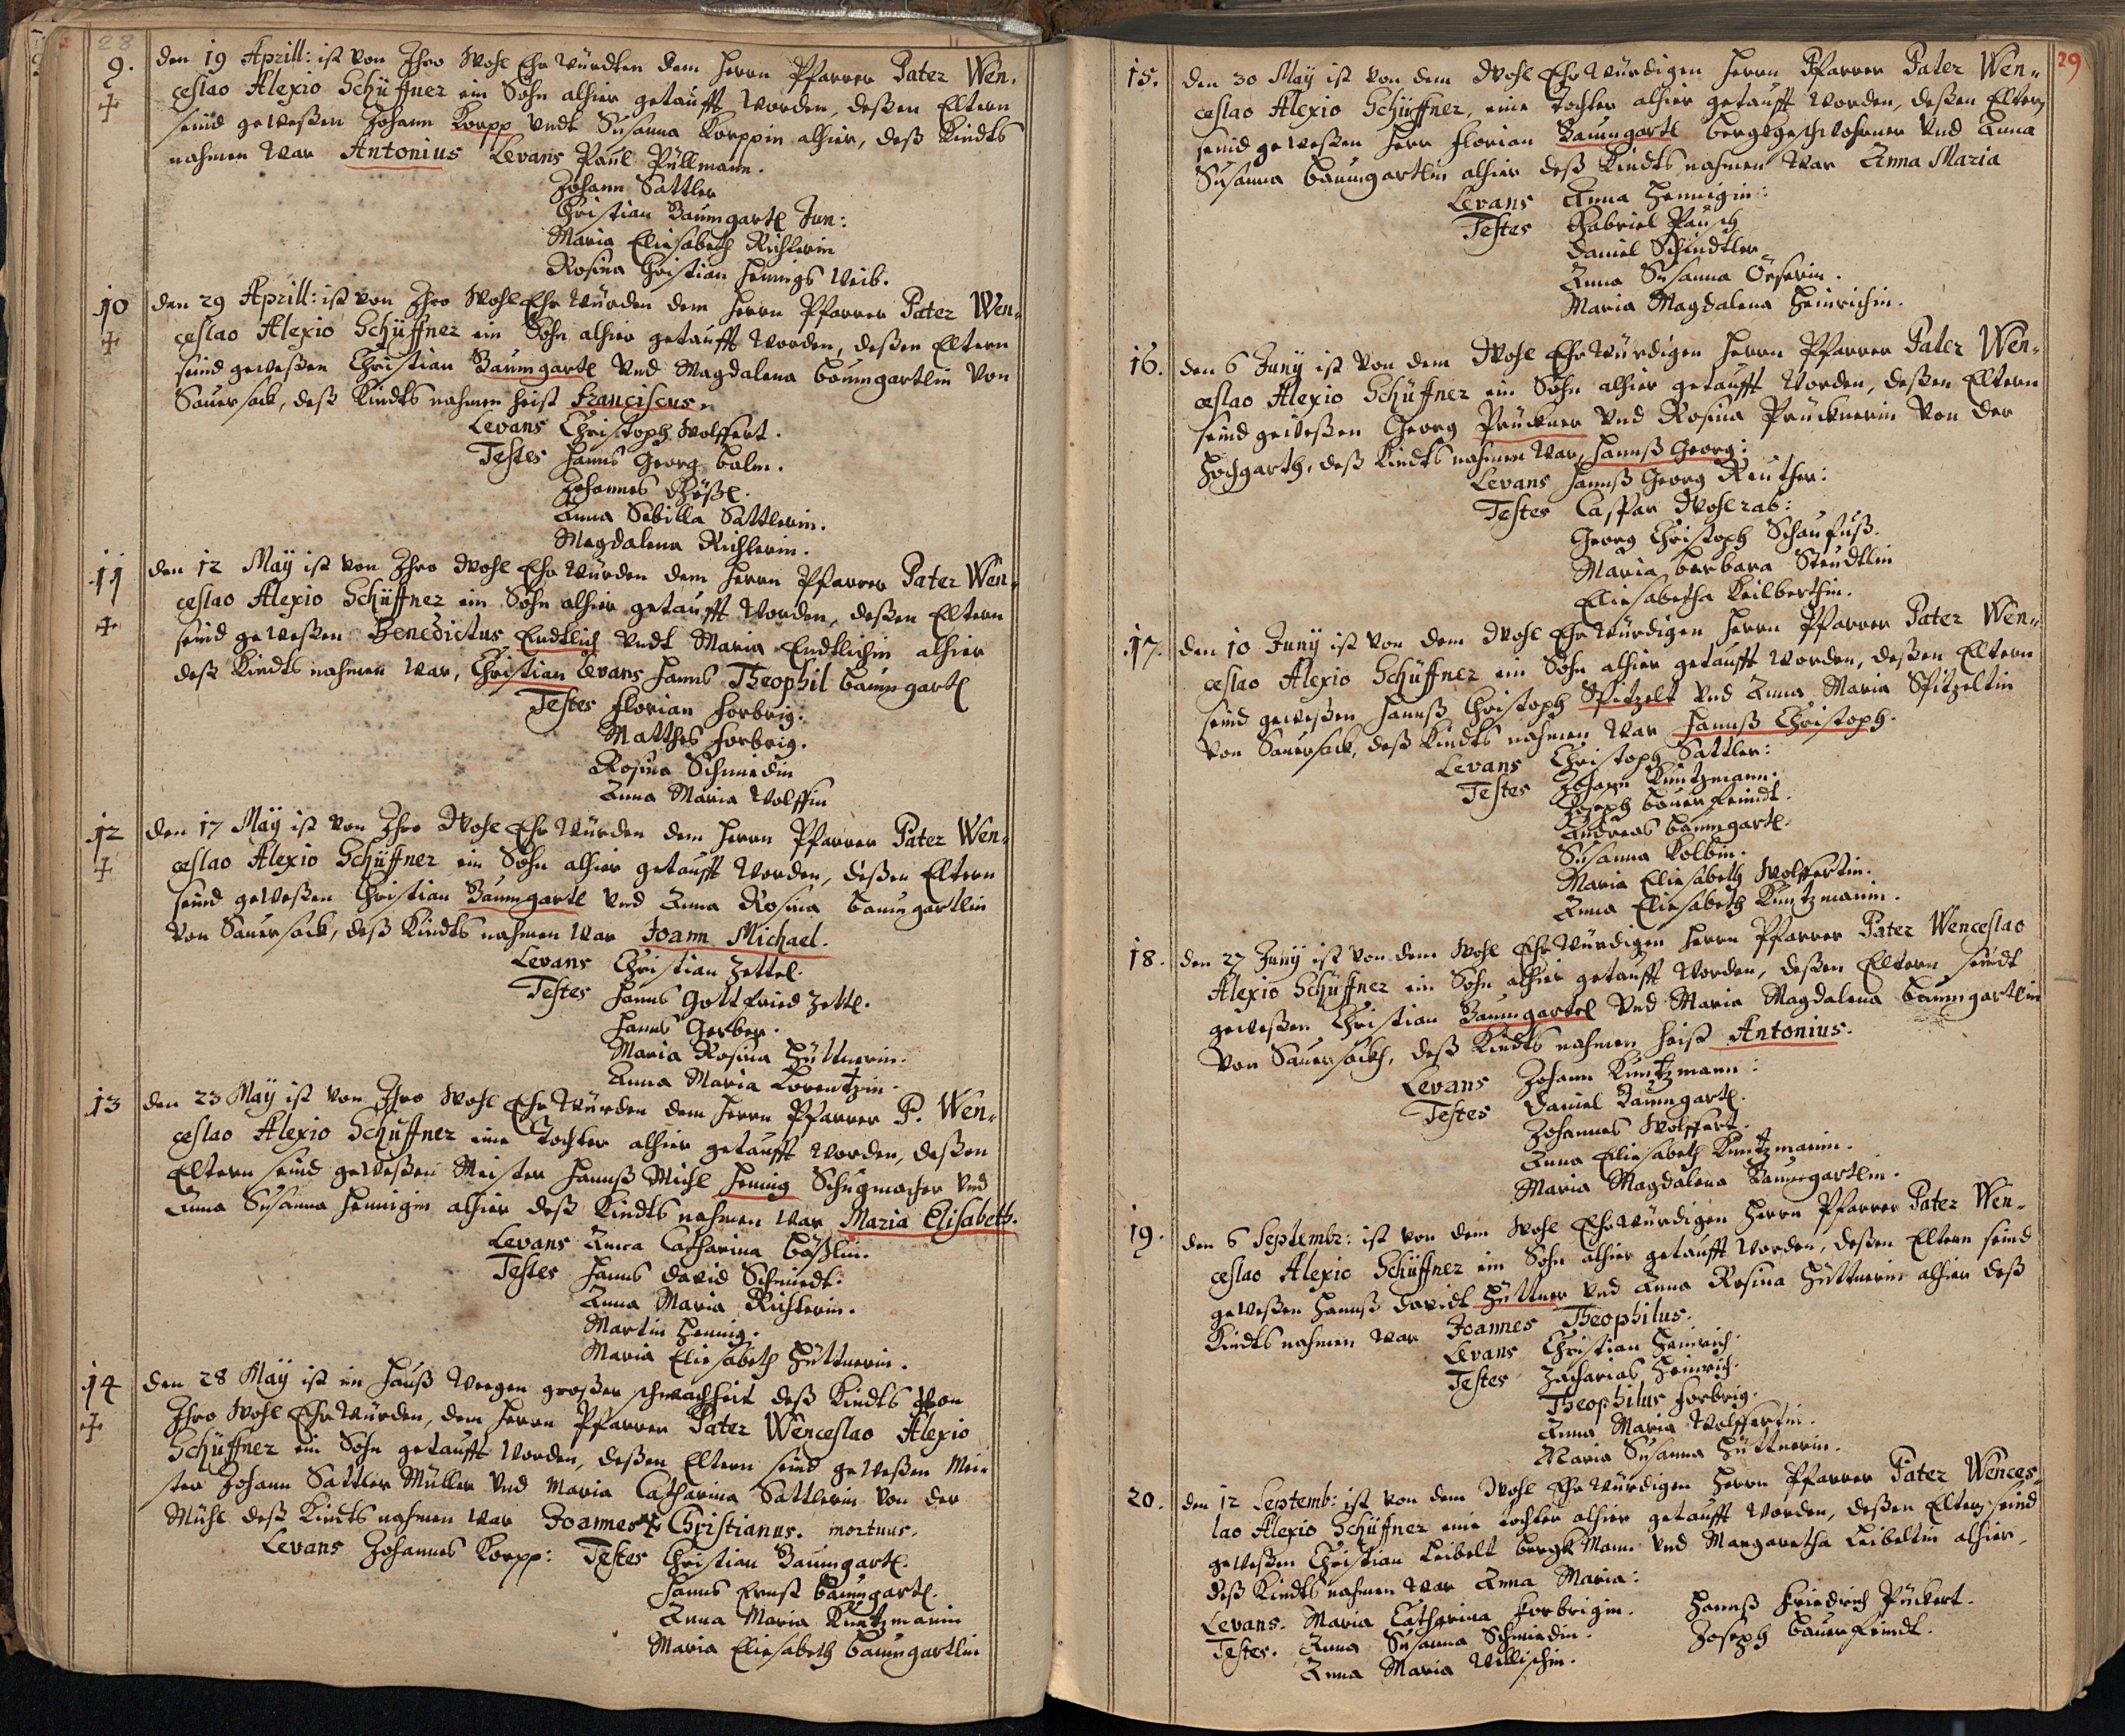 28
9. den 19 Aprill: ist von Ihro Wohl Ehr Würdten dem Herrn Pfarrer Pater Wen-
ceslao Alexio Schüffner ein Sohn alhier getaufft worden, deßen Eltern
seind geweßen Johann Korpp undt Susanna Korppin alhier, deß Kindts
nahmen war Antonius Levans Paul Püllmann.
Johann Sattler
Christian Baumgartl Jun:
Maria Eliesabeth Richterin
Rosina Christian Hennigs Weib.
10 den 29 Aprill: ist von Ihro Wohl Ehr Würden dem Herrn Pfarrer Pater Wen-
ceslao Alexio Schüffner ein Sohn alhier getaufft worden, deßen Eltern
seind geweßen Christian Baumgartl und Magdalena Baumgartlin von
Sauersack, deß Kindts nahmen heist Franciscus.
Levans Christoph Wolffert.
Testes Hanns Georg Balm.
Johannes Gößl.
Anna Sabilla Sattlerin.
Magdalena Richterin.
11 den 12 May ist von Ihro Wohl Ehr Würden dem Herrn Pfarrer Pater Wen-
ceslao Alexio Schüffner ein Sohn alhier getaufft worden, deßen Eltern
seind geweßen Benedictus Endtlich undt Maria Endtlichin alhier
deß Kindts nahmen war, Christian Levans Hanns Theophil Baumgartl
Testes Florian Forbrig.
Matthes Forbrig.
Rosina Schmiedin
Anna Maria Wolffin
12 den 17 May ist von Ihro Wohl Ehr Würden dem Herrn Pfarrer Pater Wen-
ceslao Alexio Schüffner ein Sohn alhier getaufft worden, deßen Eltern
seind geweßen Christian Baumgartl und Anna Rosina Baumgartlin
von Sauersack, deß Kindts nahmen war Joann Michael.
Levans Christian Zettel.
Testes Hanns Gottfried Zettl.
Hanns Gerber.
Maria Rosina Hüttnerin.
Anna Maria Lorentzin.
13 den 23 May ist von Ihro Wohl Ehr Würden dem Herrn Pfarrer P. Wen-
ceslao Alexio Schüffner eine Tochter alhier getaufft worden, deßen
Eltern seind geweßen Meister Hannß Michl Hennig Schugmacher und
Anna Susanna Hennigin alhier deß Kindts nahmen war Maria Elisabeth.
Levans Anna Catharina Gößlin.
Testes Hanns David Schmiedt.
Anna Maria Richterin.
Martin Hennig.
Maria Eliesabeth Hüttnerin.
14 den 28 May ist im Hauß wegen großer schwachheit deß Kindts von
Ihro Wohl Ehr Würden, dem Herrn Pfarrer Pater Wenceslao Alexio
Schüffner ein Sohn getaufft worden, deßen Eltern seind geweßen Mei-
ster Johann Sattler Müller und Maria Catharina Sattlerin von der
Mühl deß Kindts nahmen war Joannes Christianus. mortuus.
Levans Johannes Korpp: Testes Christian Baumgartl.
Hanns Ernst Baumgartl.
Anna Maria Kuntzmanin
Maria Eliesabeth Baumgartlin
29
15. den 30 May ist von dem Wohl Ehr Würdigen Herrn Pfarrer Pater Wen-
ceslao Alexio Schüffner, eine Tochter alhier getaufft worden, deßen Eltern
seind geweßen Herr Florian Baumgartl Berggeschwohrner und Anna
Susanna Baumgartlin alhier deß Kindts nahmen war Anna Maria
Levans Anna Hennigin:
Testes Gabriel Pausch
Daniel Schindtler
Anna Susanna Öeserin.
Maria Magdalena Heinrichin.
16. den 6 Juny ist von dem Wohl Ehr Würdigen Herrn Pfarrer Pater Wen-
ceslao Alexio Schüffner ein Sohn alhier getaufft worden, deßen Eltern
seind geweßen Georg Prückner und Rosina Prücknerin von der
Hochgarth, deß Kindts nahmen war, Hannß Georg:
Levans Hannß Georg Reuther:
Testes Casspar Wohlrab:
Georg Christoph Schaufuß.
Maria Barbara Steudtlin
Eliesabetha Keilberthin.
17. den 10 Juny ist von dem Wohl Ehr Würdigen Herrn Pfarrer Pater Wen-
ceslao Alexio Schüffner ein Sohn alhier getaufft worden, deßen Eltern
seind geweßen Hannß Christoph Spitzelt und Anna Maria Spitzeltin
von Sauersack, deß Kindts nahmen war Hannß Christoph.
Levans Christoph Sattler:
Testes Johann Kuntzmann.
Joseph Bauerfeindt.
Andreas Baumgartl.
Susanna Kolbin.
Maria Eliesabeth Wolffertin.
Anna Eliesabeth Kuntzmanin.
18. den 27 Juny ist von dem Wohl Ehr Würdigen Herrn Pfarrer Pater Wenceslao
Alexio Schüffner ein Sohn alhier getaufft worden, deßen Eltern seindt
geweßen Christian Baumgartl und Maria Magdalena Baumgartlin
von Sauersackh, deß Kindts nahmen heist Antonius.
Levans Johann Kuntzmann:
Testes Daniel Baumgartl.
Johannes Wolffert.
Anna Eliesabeth Kuntzmanin.
Maria Magdalena Baumgartlin.
19. den 6 Septembr: ist von dem Wohl Ehr Würdigen Herrn Pfarrer Pater Wen-
ceslao Alexio Schüffner ein Sohn alhier getaufft worden, deßen Eltern seind
geweßen Hannß Davidt Hüttner und Anna Rosina Hüttnerin alhier deß
Kindts nahmen war Joannes Theophilus.
Levans Christian Heinrich.
Testes Zacharias Heinrich.
Theophilus Forbrig.
Anna Maria Wolffertin.
Maria Susanna Hüttnerin.
20. den 12 Septemb: ist von dem Wohl Ehr Würdigen Herrn Pfarrer Pater Wences-
lao Alexio Schüffner eine Tochter alhier getaufft worden, deßen Eltern seind
geweßen Christian Leibelt Bergk Mann und Margaretha Leibeltin alhier,
deß Kindts nahmen war Anna Maria:
Levans. Maria Catharina Forbrigin. Hannß Friedrich Pückert.
Testes. Anna Susanna Schmiedin. Joseph Bauerfeindt.
Anna Maria Ullischin.